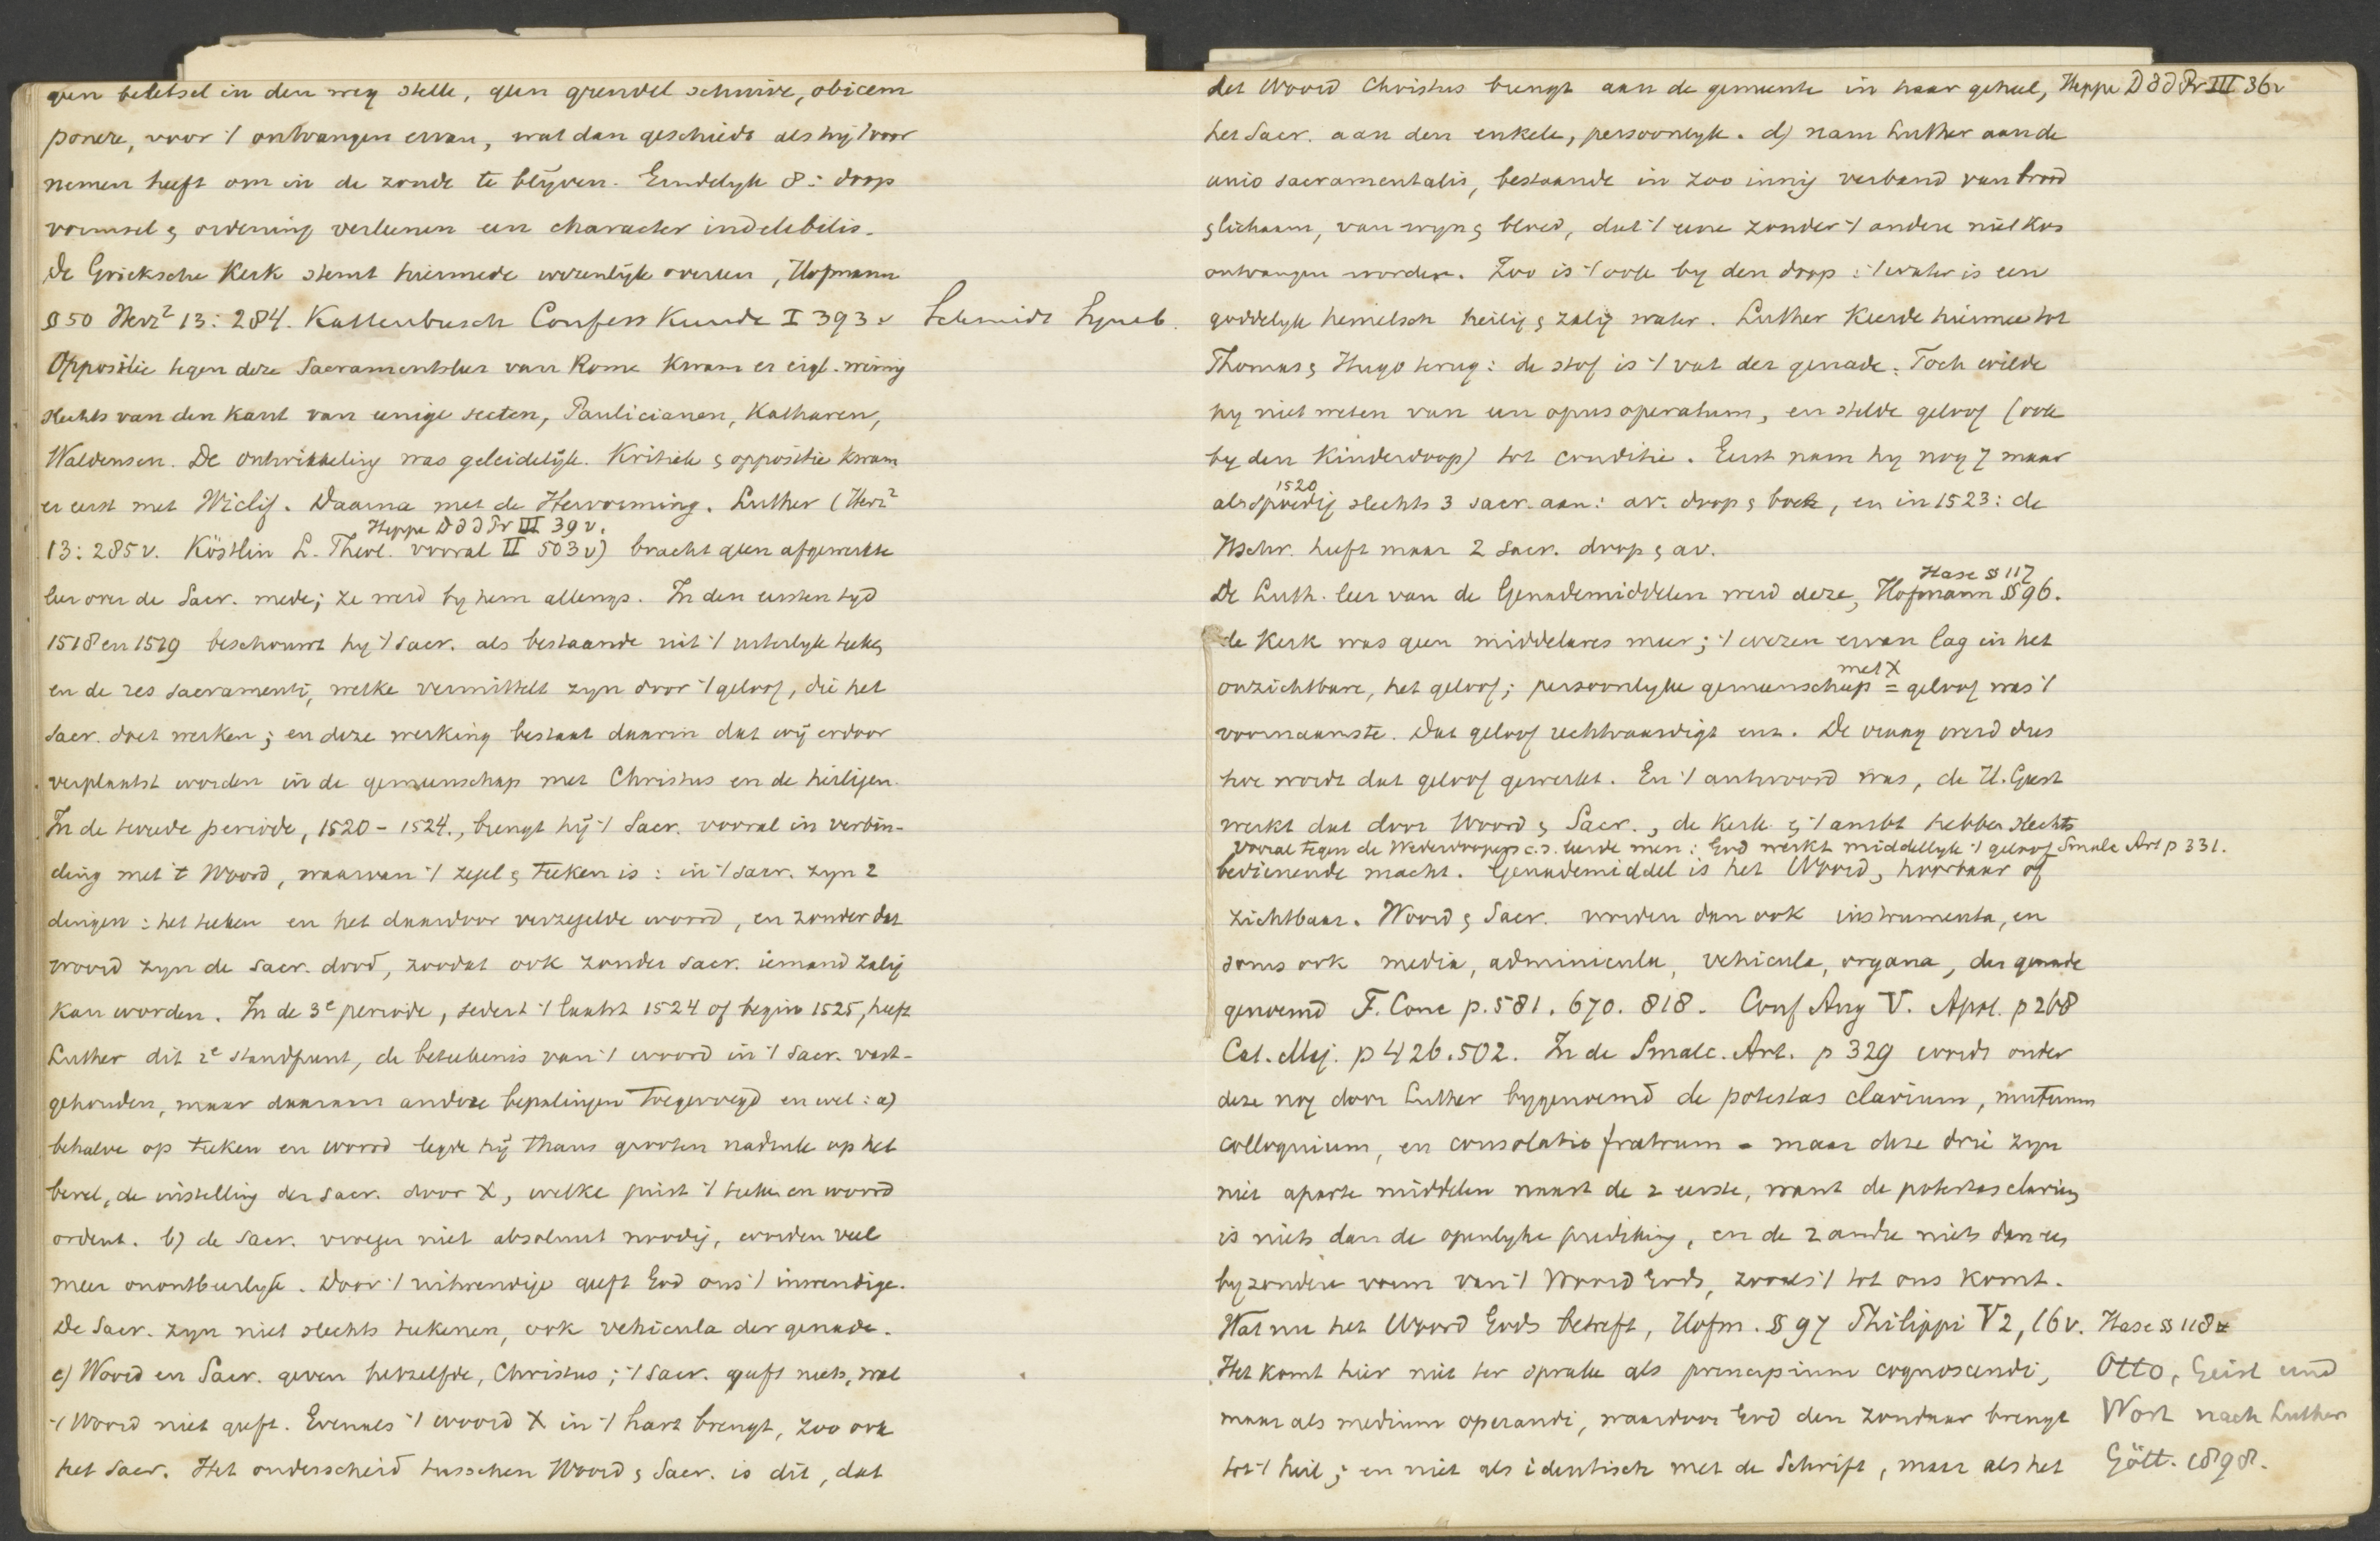 geen beletsel in den weg stelle, geen grendel schuive, obicem
ponere, voor 't ontvangen ervan, wat dan geschiedt als hij 't voor
nemen heeft om in de zonde te blijven. Eindelijk 8: doop
vormsel & ordening verleenen een character indelebilis.
De Grieksche Kerk stemt hiermede wezenlijk overeen, Hofmann
§ 50 Herz² 13: 284. Kattenbusch Confess Kunde I 393 v Schmidt Symb.
Oppositie tegen deze Sacramentsleer van Rome kwam er eigl. weinig
slechts van den kant van eenige secten, Paulicianen, Katharen,
Waldensen. De ontwikkeling was geleidelijk. Kritiek & oppositie kwam
er eerst met Wiclif. Daarna met de Hervorming. Luther (Herz²
Heppe D d d Pr III 39 v.
13: 285 v. Köstlin L. Theol. vooral II 503 v) bracht geen afgewerkte
leer over de Sacr. mede; ze werd by hem allengs. In den eersten tyd
1518 en 1519 beschouwt hy 't sacr. als bestaande uit 't uiterlyk teeken
en de res sacramenti, welke vermittelt zyn door 't geloof, die het
sacr. doet werken; en deze werking bestaat daarin dat wij erdoor
verplaatst worden in de gemeenschap met Christus en de heiligen.
In de tweede periode, 1520 - 1524., brengt hij 't Sacr. vooral in verbin-
ding met 't Woord, waarvan 't zegel & teeken is: in 't sacr. zyn 2
dingen: het teeken en het daardoor verzegelde woord, en zonder dat
woord zyn de sacr. dood, zoodat ook zonder sacr. iemand zalig
kan worden. In de 3e periode, sedert 't laatst 1524 of begin 1525, heeft
Luther dit 2e standpunt, de beteekenis van 't woord in 't sacr. vast-
gehouden, maar daaraan andere bepalingen toegevoegd en wel: a)
behalve op teeken en woord legde hij thans grooten nadruk op het
bevel, de instelling der sacr. door X, welke juist 't teeken en woord
ordent. b) de sacr. vroeger niet absoluut noodig, worden veel
meer onontbeerlyk. Door 't uitwendige geeft God ons 't inwendige.
De Sacr. zyn niet slechts teekenen, ook vehicula der genade.
c) Woord en Sacr. geven hetzelfde, Christus; 't sacr. geeft niets, wat
't Woord niet geeft. Evenals 't woord X in 't hart brengt, zoo ook
het sacr. Het onderscheid tusschen Woord & Sacr. is dit, dat
het Woord Christus brengt aan de gemeente in haar geheel, Heppe D d d Pr III 36 v
het Sacr. aan den enkele, persoonlyk. d) nam Luther aan de
unio sacramentalis, bestaande in zoo innig verband van brood
& lichaam, van wyn & bloed, dat 't eene zonder 't andere niet kon
ontvangen worden. Zoo is 't ook by den doop: 't water is een
goddelyk hemelsch heilig & zalig water. Luther keerde hiermee tot
Thomas & Hugo terug: de stof is 't vat der genade. Toch wilde
hy niet weten van een opus operatum, en stelde geloof (ook
by den kinderdoop) tot conditie. Eerst nam hy nog 7 maar
1520
al spoedig slechts 3 sacr. aan: av. doop & boete, en in 1523: de
Nschr. heeft maar 2 sacr. doop & av.
Hase § 117
De Luth. leer van de Genademiddelen werd deze, Hofmann § 96.
de Kerk was geen middelares meer; 't wezen ervan lag in het
met X
onzichtbare, het geloof; persoonlyke gemeenschap = geloof was 't
voornaamste. Dat geloof rechtvaardigt enz. De vraag werd dus
hoe wordt dat geloof gewerkt. En 't antwoord was, de H. Geest
werkt dat door Woord & Sacr., de kerk & 't ambt hebben slechts
vooral tegen de Wederdoopers c.s. leerde men: God werkt middellyk 't geloof Smalc Art p 331.
bedienende macht. Genademiddel is het Woord, hoorbaar of
zichtbaar. Woord & Sacr. worden dan ook instrumenta, en
soms ook media, adminicula, vehicula, organa, der genade
genoemd F. Conc p. 581. 670. 818. Conf Aug V. Apol. p 268
Cat. Maj. p 426. 502. In de Smalc. Art. p 329 wordt onder
deze nog door Luther bygenoemd de potestas clavium, mutuum
colloquium, en consolatio fratrum - maar deze drie zyn
niet aparte middelen naast de 2 eerste, want de potestas clavium
is niets dan de openlyke prediking, en de 2 andre niets dan een
byzondere vorm van 't Woord Gods, zooals 't tot ons komt.
Wat nu het Woord Gods betreft, Hofm. § 97 Philippi V 2, 16 v. Hase § 118
Het komt hier niet ter sprake als principium cognoscendi, Otto, Geist und
maar als medium operandi, waardoor God den zondaar brengt Wort nach Luther
tot 't heil; en niet als identisch met de Schrift, maar als het Gött. 1898.